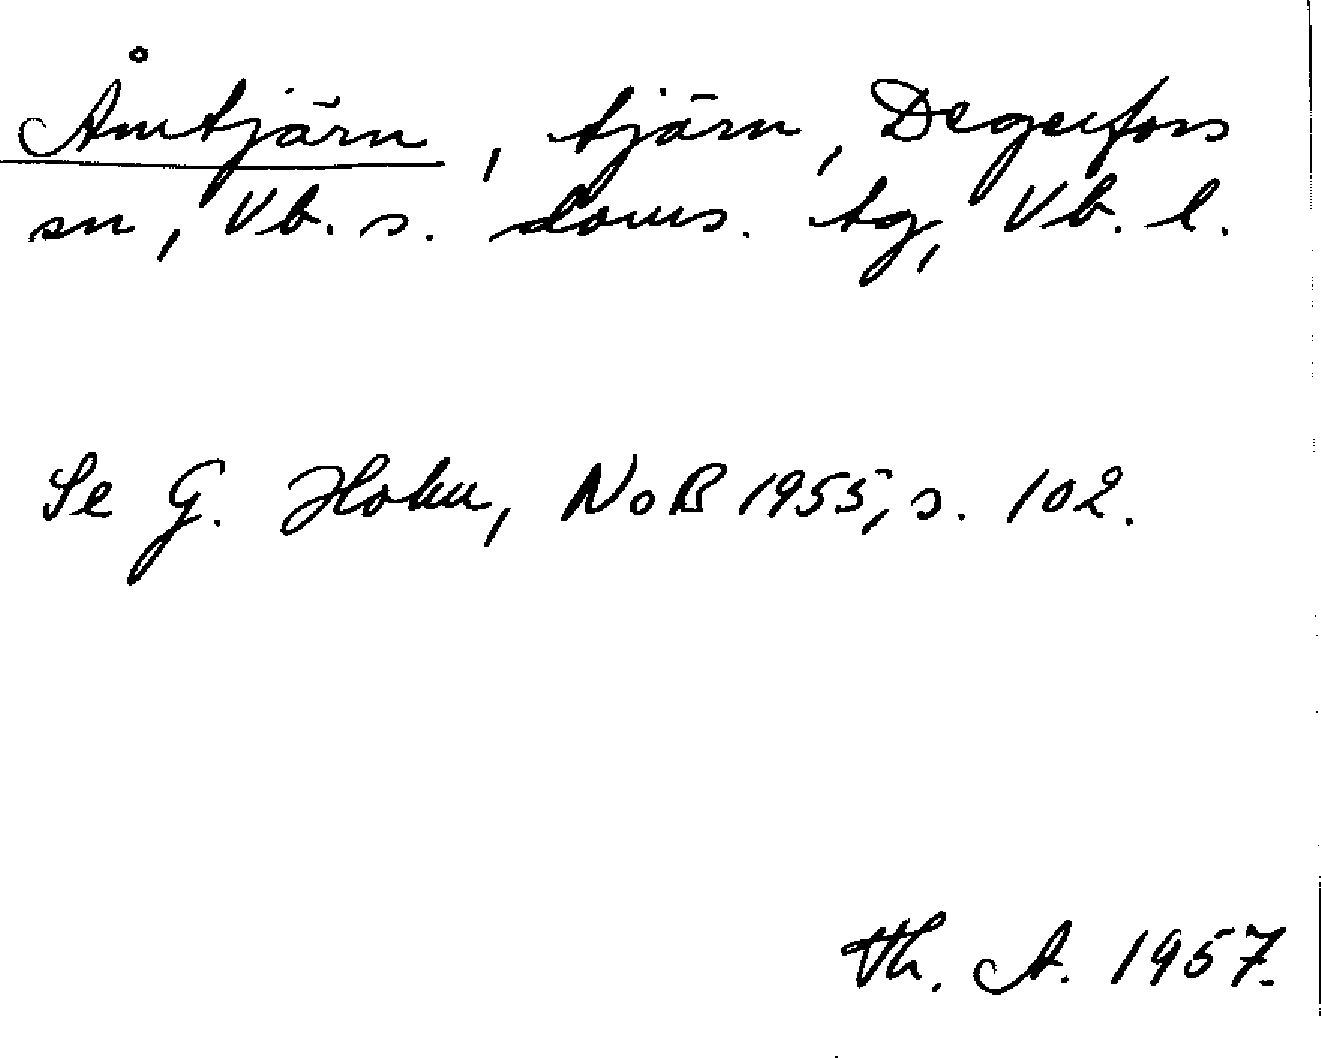 Åmtjärn, tjärn, Degerfors
sn, Vb. s. doms. tg, Vb. l.
Se G. Holm, NoB 1955, s. 102.
Th. A. 1957.